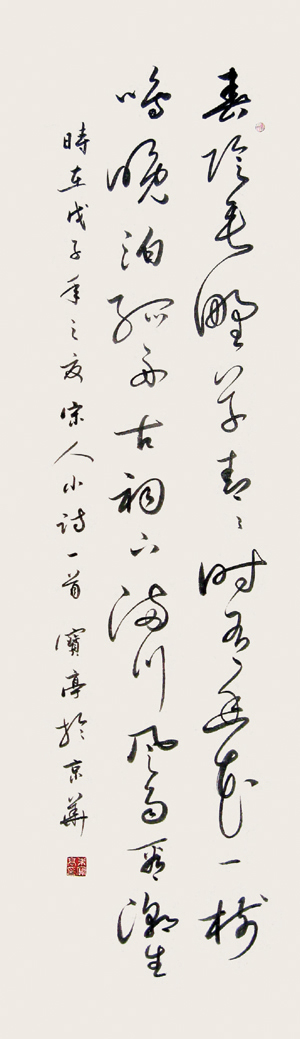 春陰垂野草青々时有幽花一樹
明晚泊孤舟古祠下满川風雨看潮生
時在戊子年之夏宋人小诗一首 寶亭於京華